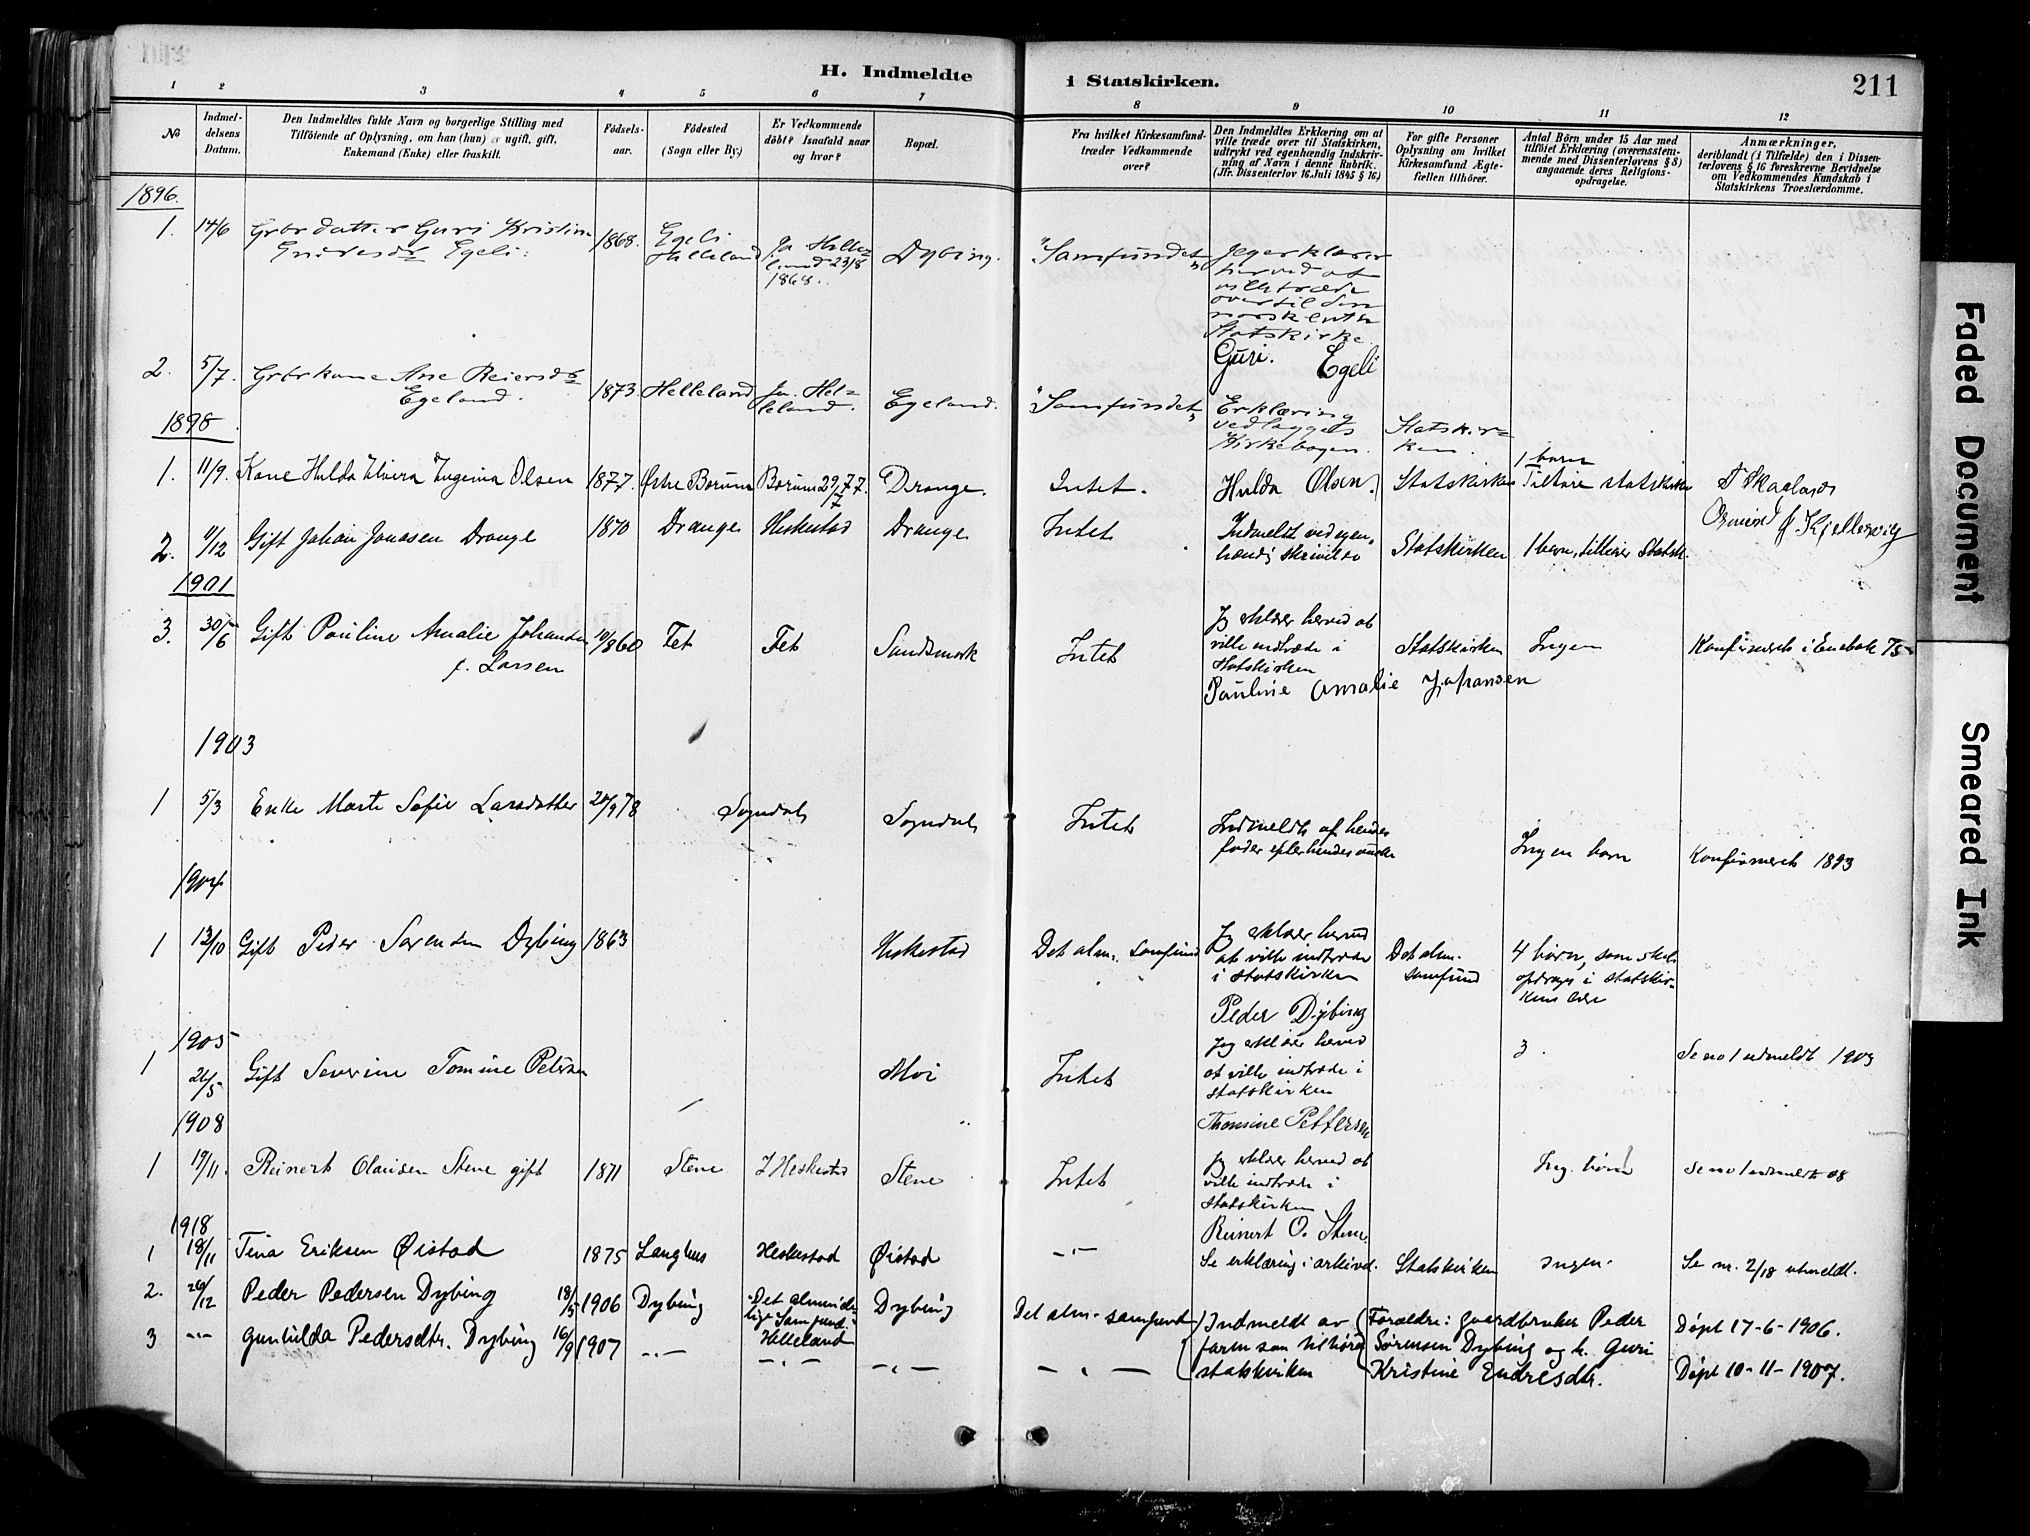 H. Indmeldte i Statskirken. 211
1 2 3 4 5 6 7 8 9 10 11 12
No
Indmeldelsens Datum.
Den Indmeldtes fulde Navn og borgerlige Stilling med
Tilföiende af Oplysning, om han (hun) er ugift, gift,
Enkemand (Enke) eller fraskilt.
Födselsaar.
Födested
(Sogn eller By.)
Er Vedkommende
döbt? Isaafald naar
og hvor?
Bopæl.
Fra hvilket Kirkesamfund
træder Vedkommende
over?
Den Indmeldtes Erklæring om at
ville træde over til Statskirken,
udtrykt ved egenhændig Indskrivning af Navn i denne Rubrik.
(Jfr. Dissenterlov 16. Juli 1845 § 16)
For gifte Personer
Oplysning om hvilket
Kirkesamfund Ægtefællen tilhörer.
Antal Börn under 15 Aar med
tilföiet Erklæring (overensstemmende med Dissenterlovens § 8)
angaaende deres Religionsopdragelse.
Anmærkninger,
deriblandt (i Tilfælde) den i Dissenterlovens § 16 foreskrevne Bevidnelse
om Vedkommendes Kundskab i
Statskirkens Troeslærdomme.
1896.
1. 14/6 Grbrdatter Guri Kristine
Endresdr Egeli.
1868. Egeli
Helleland
Ja. Helleland 23/8
1868.
Dybing.
"Samfundet"
Jeg erklærer
herved at
ville træde
over til den
norsk luth
Statskirke
Guri. Egeli
2. 5/7. Grbrkone Ane Reiersdr
Egeland.
1873. Helleland Ja. Helleland. Egeland.
"Samfundet"
Erklæring
vedlagges
Kirkebogen.
Statskirken.
1898
1. 11/9. Kone Hulda Elvera Eugenia Olsen 1877. Østre Borum Borum 29/7 77. Drange. Intet. Hulda Olsen. Statskirken
1 barn
Tilhøre statskirke
T Skaaland
2. 11/12 Gift Johan Jonassen Drange 1870 Drange Heskestad Drange Intet
Indmeldt ved egenhændig skrivelse
Statskirken 1 barn, tilhører Statsk.
Kjellesvig
1901
3. 30/6 Gift Pauline Amalie Johansen
f. Larsen
10/8 60 Fet Fet Sandsmork Intet
Jeg erklærer herved at
ville indtræde i
Statskirken
Pauline Amalie Johansen
Statskirken Ingen Konfirmeret i Enebak 75
1903
1 5/3 Enke Marte Sofie Larsdatter 20/9 78 Sogndal Sogndal Intet
Indmeldt af hendes
fader efter hendes ønske
Ingen barn Konfirmeret 1893
1904
1 13/10 Gift Peder Sørensen Dybing 1863 Heskestad Det alm. samfund
Jeg erklærer herved
at ville indtræde
i statskirken
Peder Dybing
Det alm.
samfund
4 børn, som skal
opdrages i statskirkens lære
1905
1 26/5 Gift Severine Tomine Petersen Moi Intet
Jeg erklærer herved
at ville indtræde i
statskirken
Thomine Pettersen
3. Se no 1 udmeldt 1903
1908
1 19/11. Reinert Olausen Stene gift 1871 Stene I Heskestad Stene Intet
Jeg erklærer herved at
ville indtræde i
statskirken
Reinert O. Stene.
Ing. børn Se no 1 udmeldt 08
1918
1 18/11 Tina Eriksen Øistad 1875 Langhus Heskestad Øistad -"- Se erklæring i arkivet. Statskirken ingen. Se nr. 2/18 utmeldt.
2. 26/12 Peder Pedersen Dybing 18/5 1906 Dybing
Det almindelige Samfund i
Helleland
Dybing Det alm. samfund
3 -"- Gunhilda Pedersdtr. Dybing 16/9 1907 -"- -"- -"- -"-
Indmeldt av
faren som tilhører
statskirken
Forældre: gaardbruker Peder
Sørensen Dybing og h. Guri
Kristine Endresdtr.
Døpt 17-6-1906.
Døpt 10-11-1907.
Faded Document
Smeared Ink